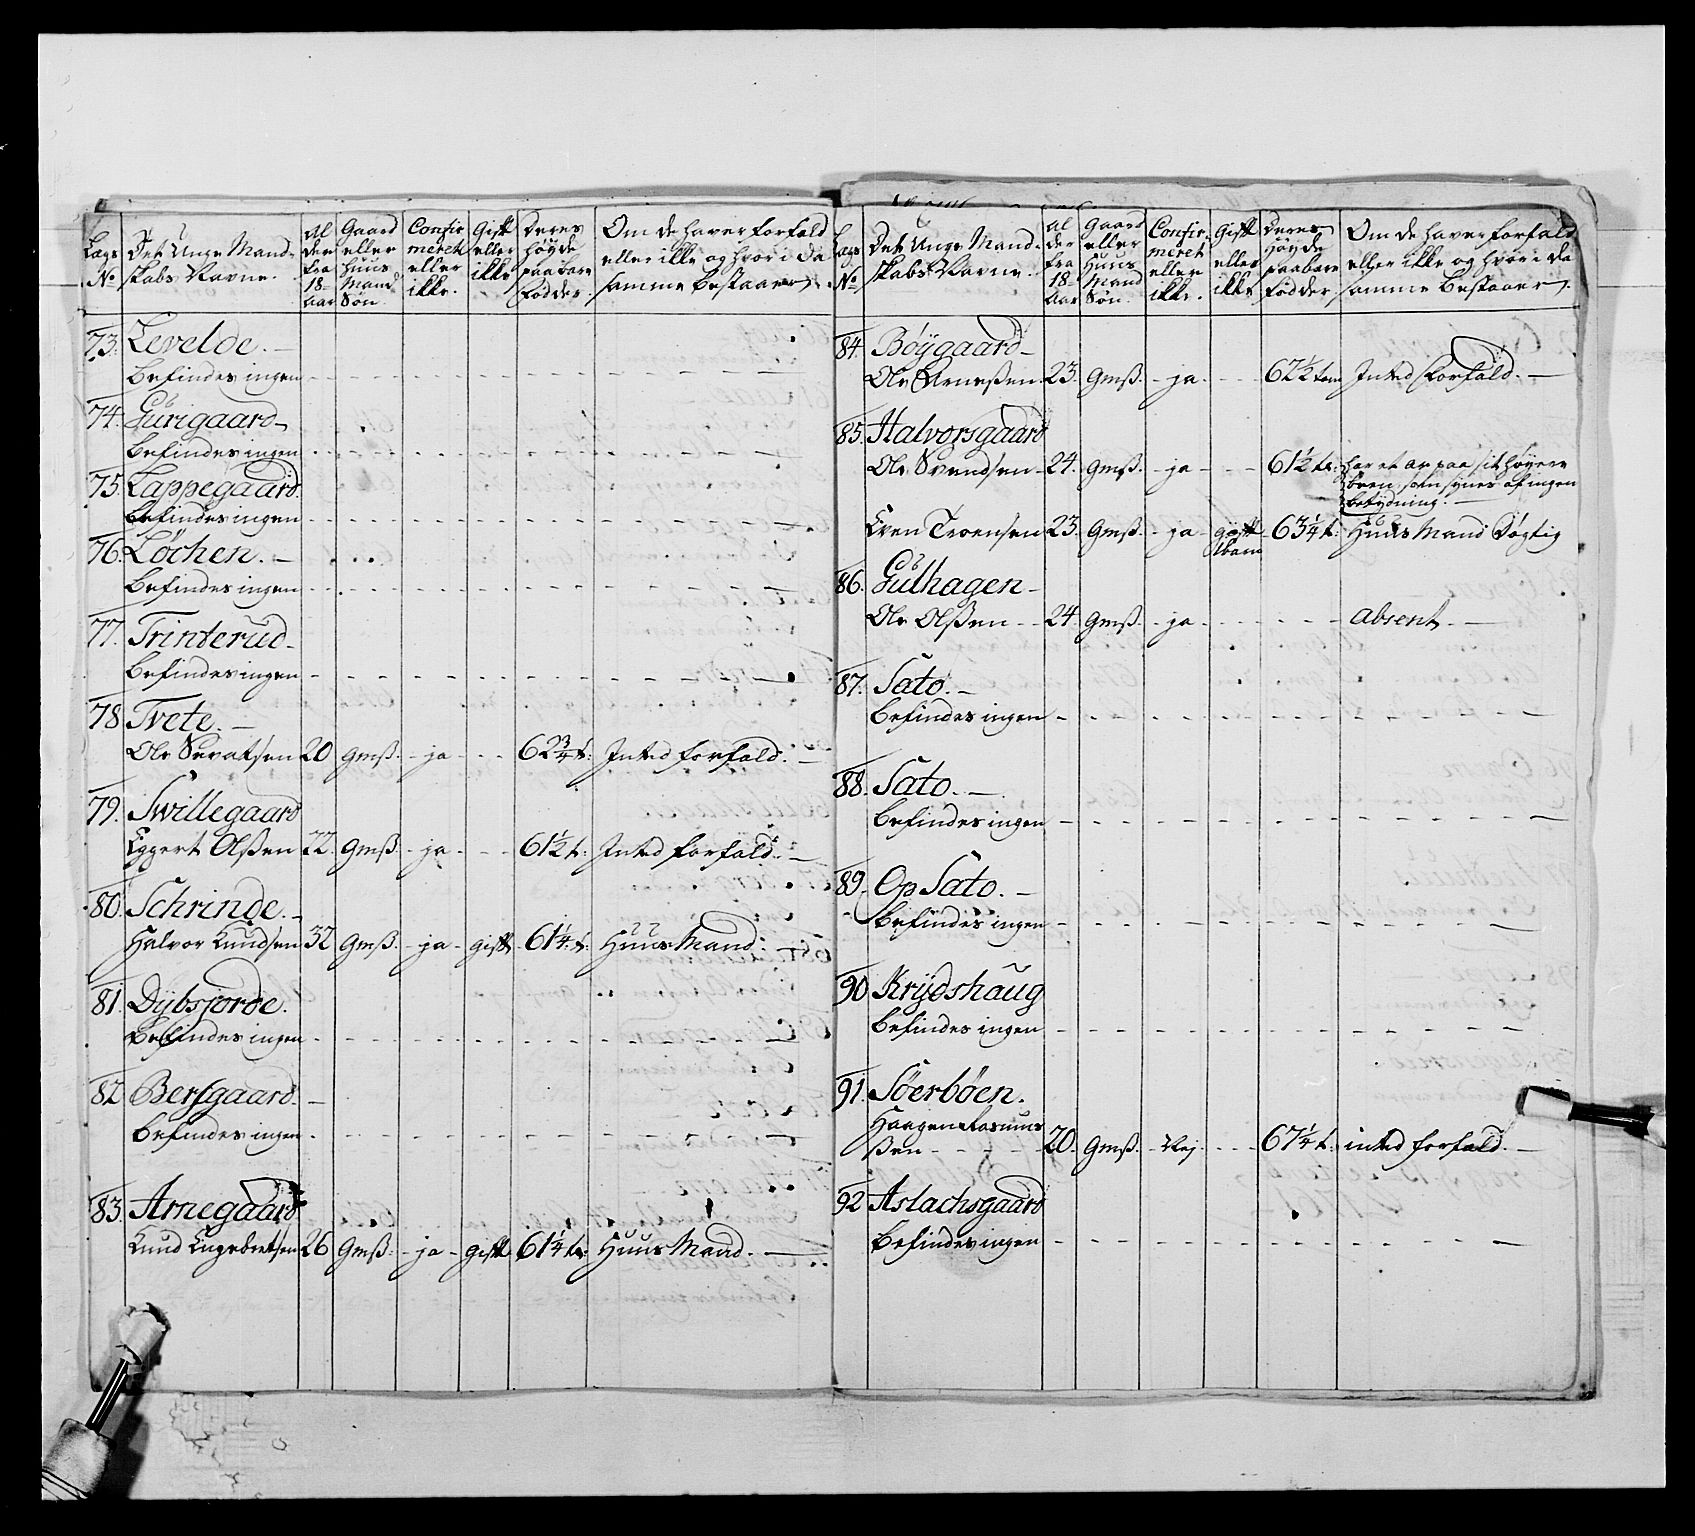 Lægs No | Det Unge Mandskabs Navne. | Alder fra 18 Aar | Gaard eller Huus Mand Søn | Confirmeret eller ikke. | Gift eller ikke | Deres høyde paa bare Fødder | Om de haver forfald eller ikke og hvori da samme bestaaer
73. Levelde. –
befindes ingen
74. Gurigaard –
befindes ingen
75. Lappegaard.
befindes ingen
76. Løchen. –
befindes ingen
77. Trinterud –
befindes ingen
78 Tvete. –
Ole Sevatsen 20 gmß. ja 62¾ t: Inted forfald. –
79. Swillegaard
Eggert Olßen 22. gmß. ja 61½ t: Inted forfald. –
80. Schrinde. –
Halvor Knudsen 32 gmß. ja gift 61¼ t: Huus Mand.
81. Dybsjorde.
befindes ingen
82 Bersgaard. –
befindes ingen
83. Arnegaard
Knud Engebretsen 26 gmß. ja gift 61¼ t: Huus Mand. –
Lægs No | Det Unge Mandskabs Navne. | Alder fra 18 Aar | Gaard eller Huus Mand Søn | Confirmeret eller ikke. | Gift eller ikke | Deres høyde paa bare Fødder | Om de haver forfald eller ikke og hvori da samme bestaaer.
84. Bøygaard –
Ole Arneßen. 23. gmß. ja 62½ tom Inted Forfald. –
85. Halvorsgaard
Ole Svendsen 24. gmß. ja 61½ t: har et ar paa sit høyere
been, som synes af ingen
betydning.
Even Troensen 23. gmß. ja gift 63¼ t: Huus Mand Døgtig
1 barn
86. Gulhagen –
Ole Olßen 24. gmß. ja absent. –
87. Sato. –
befindes ingen
88. Sato. –
befindes ingen
89. Op Sato. –
befindes ingen
90 Krydshaug
befindes ingen
91. Søerbøen.
Haagen Rasmus
ßen 20. gmß. Nej 67¼ t: inted forfald. –
92 Aslachsgaard
befindes ingen